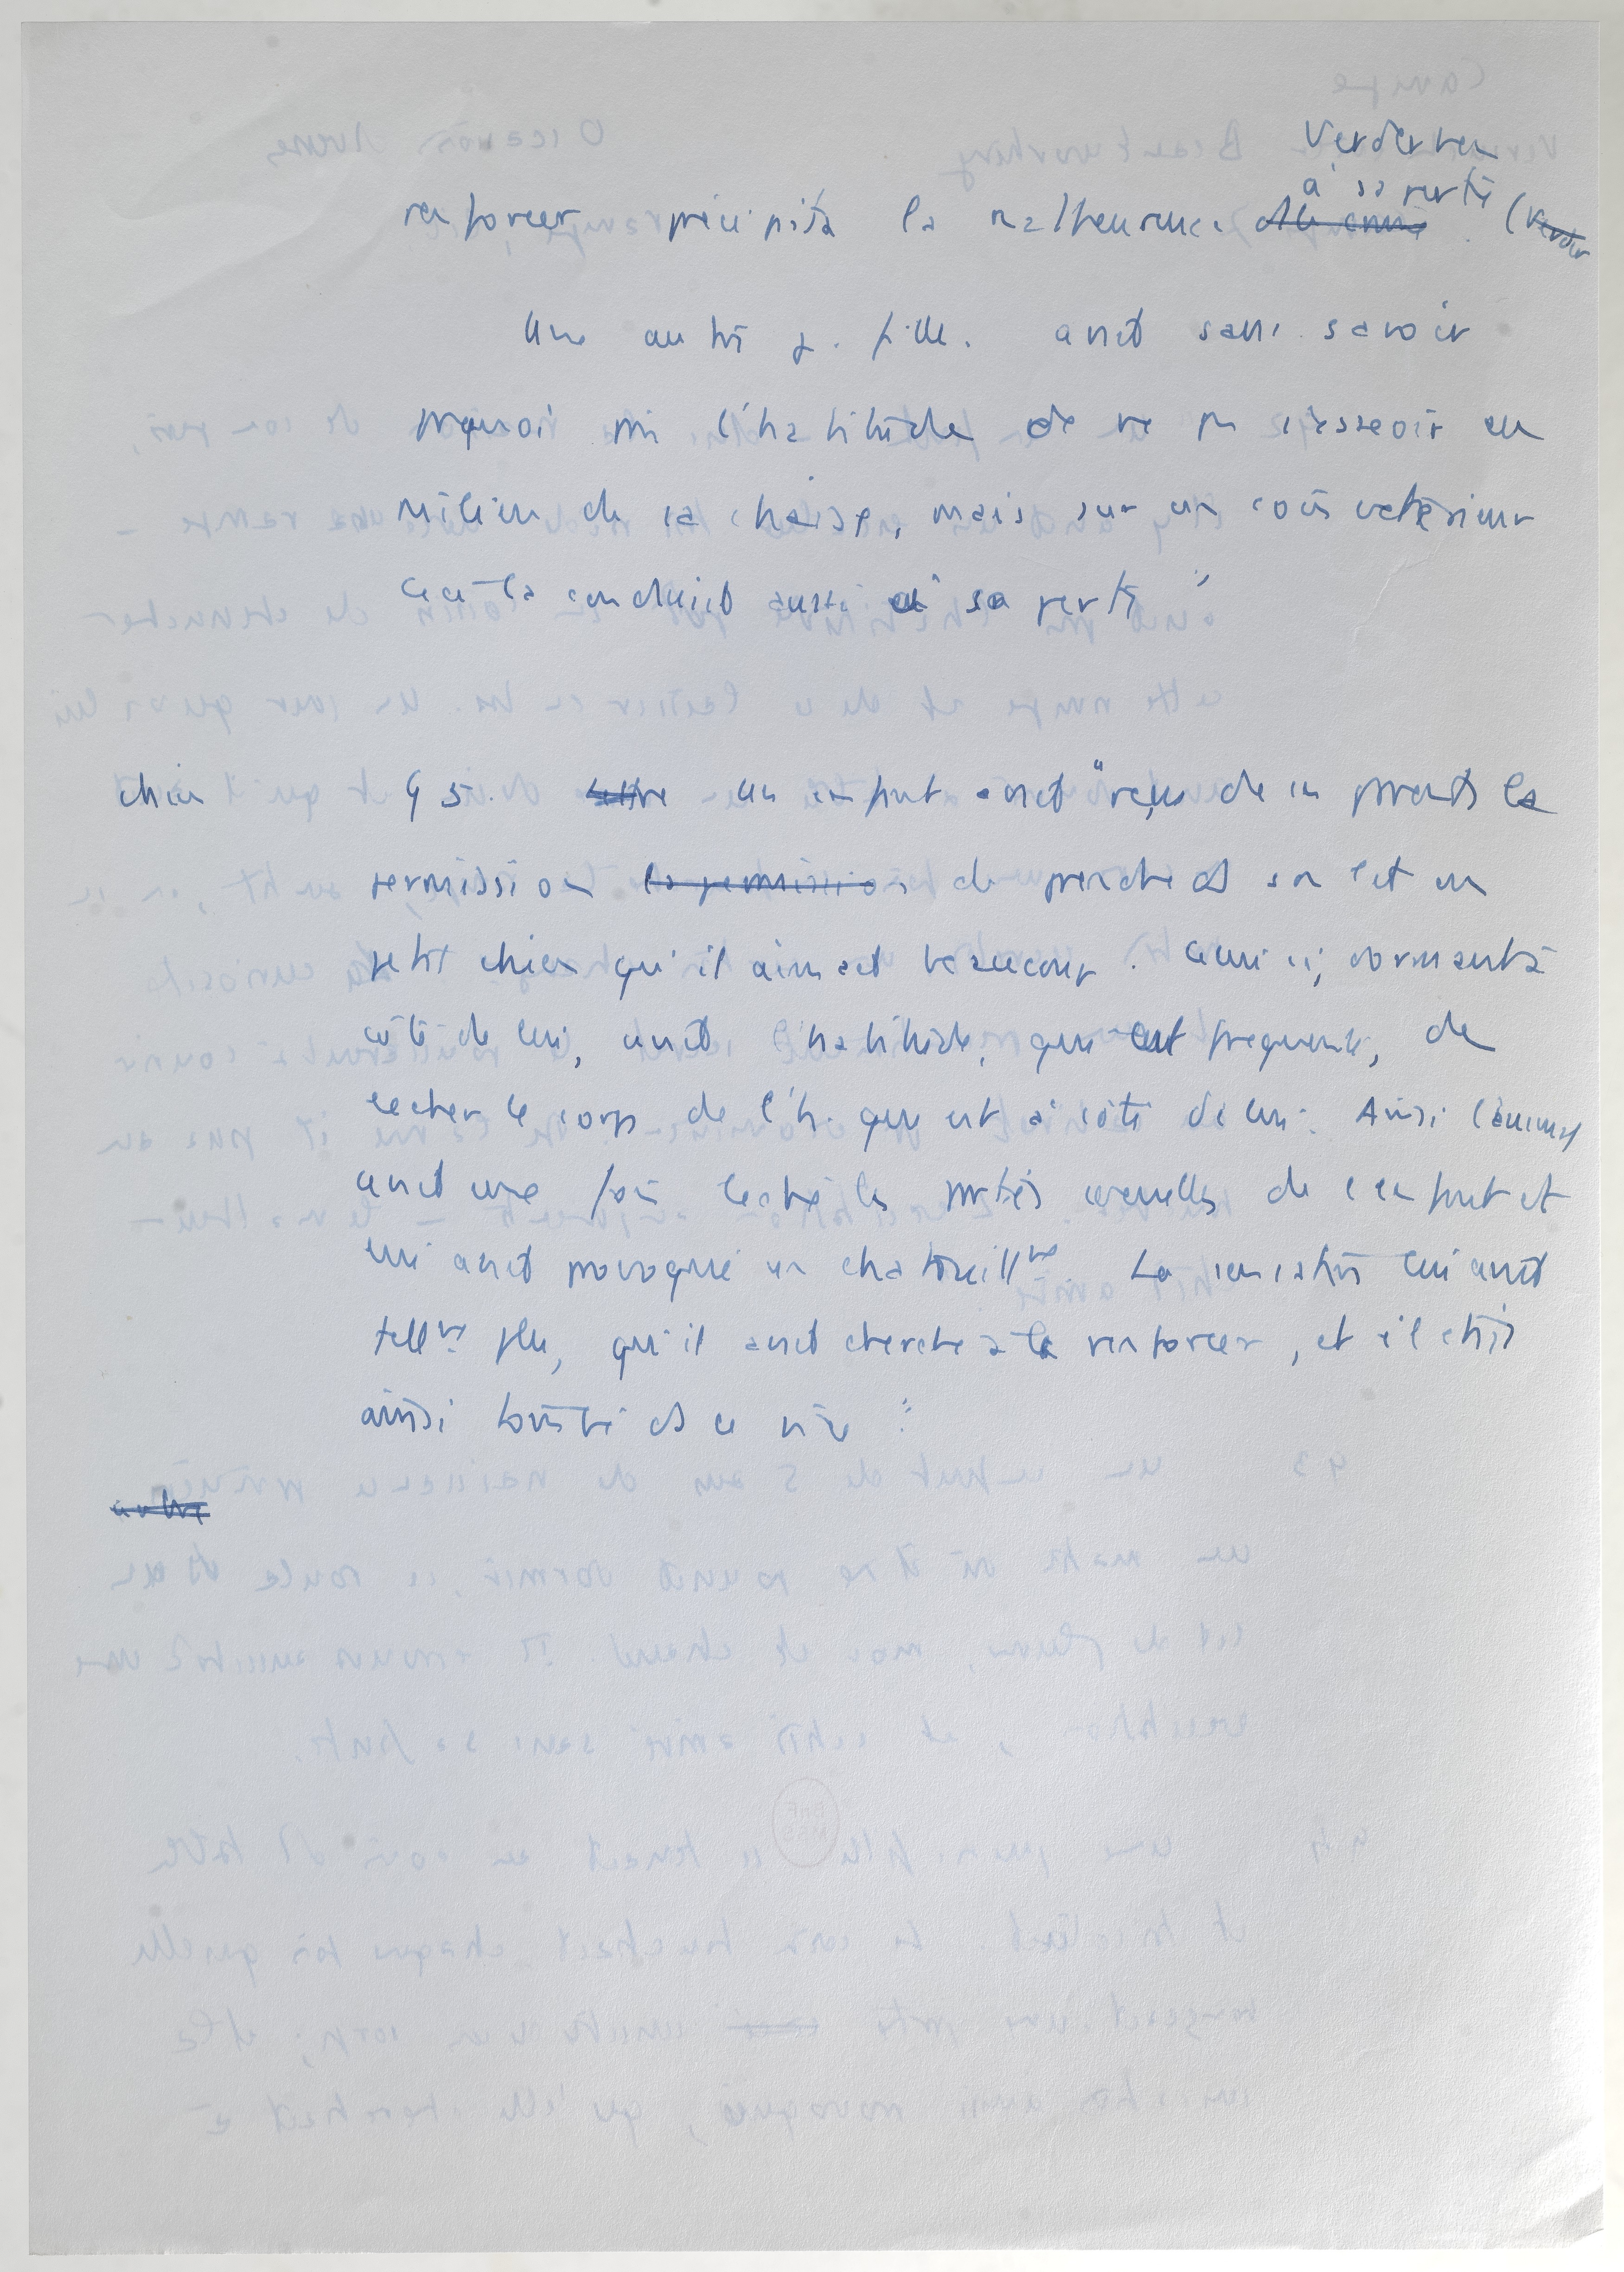 Verderben
à sa perte
renforcer précipita la malheureuse (Verder
Une autre j. fille. avait sans savoir
pourquoi pris l'habitude de ne pas s'asseoir au
milieu de sa chaise, mais sur un coin
Ceci la conduisit aussi à sa perte "
chien 95. autre un enfant avait "reçu de ses parents la
permission la permission de prendre ds son lit un
petit chien qu'il aimait beaucoup. Celui ci, dormant à
côté de lui, avait l'habitude, qui est fréquente, de
lecher le corps de l'h. qui est à côté de lui. Ainsi l'animal
avait une fois leché les parties sexuelles de l'enfant et
lui avait provoqué un chatouillmt. La sensation lui avait
tellmt plu, qu'il avait cherché à la renforcer, et s'était
ainsi tombé ds ce vice "
autre